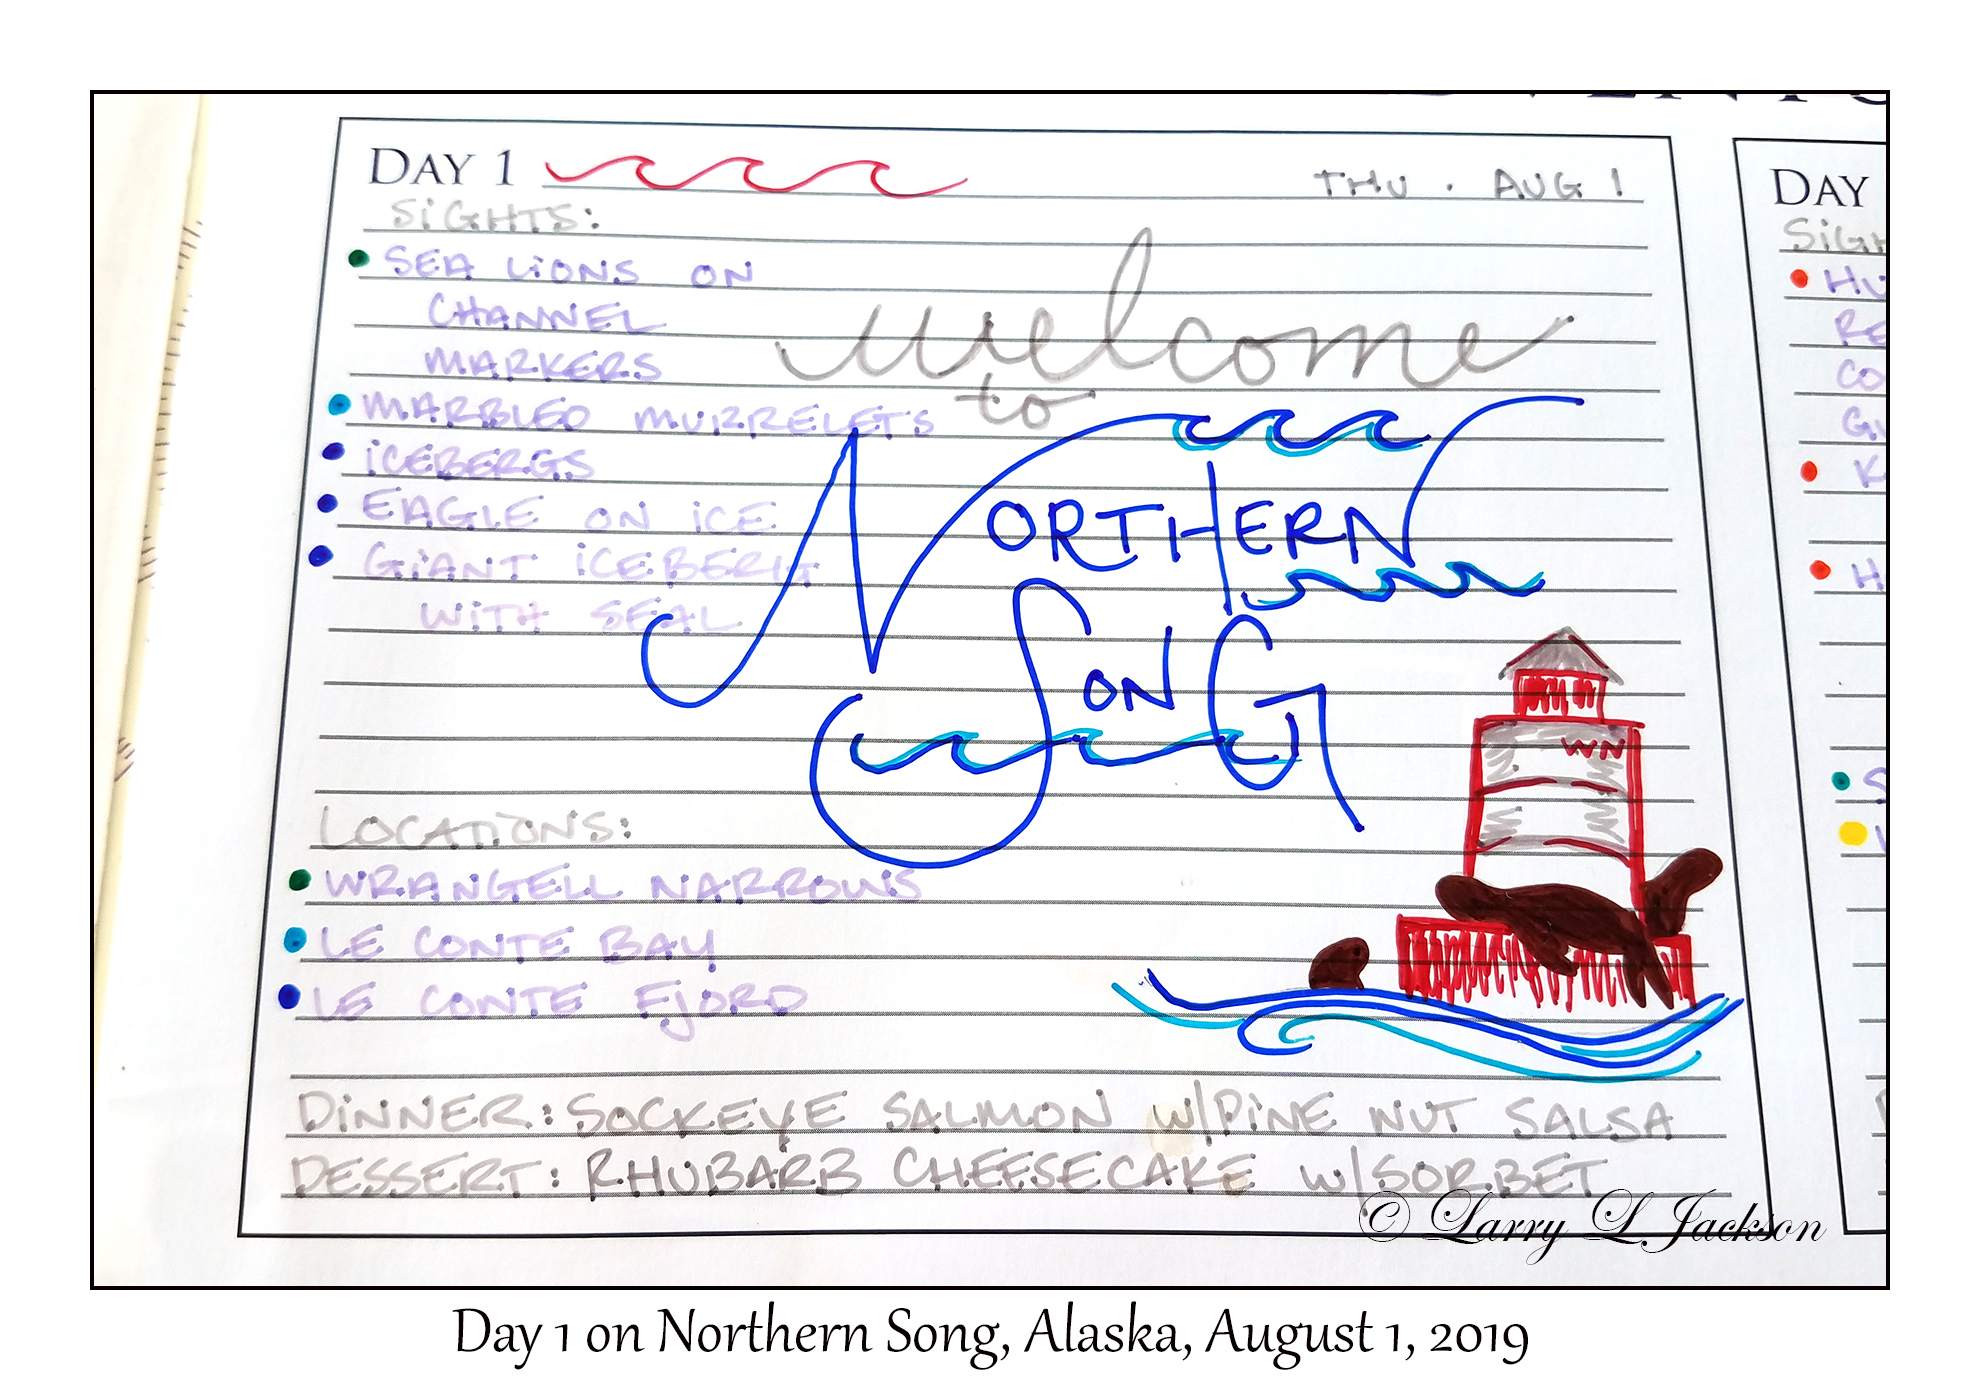 DAY 1
THU . AUG 1
SIGHTS:
SEA LIONS ON
CHANNEL
MARKERS
MARBLED MURRELETS
ICEBERGS
EAGLE ON ICE
GIANT ICEBERG
WITH SEAL
welcome
to
NORTHERN
SONG
WN
LOCATIONS:
WRANGELL NARROWS
LE CONTE BAY
LE CONTE FJORD
DINNER: SOCKEYE SALMON W/PINE NUT SALSA
DESSERT: RHUBARB CHEESECAKE W/SORBET
DAY
© Larry L Jackson
Day 1 on Northern Song, Alaska, August 1, 2019